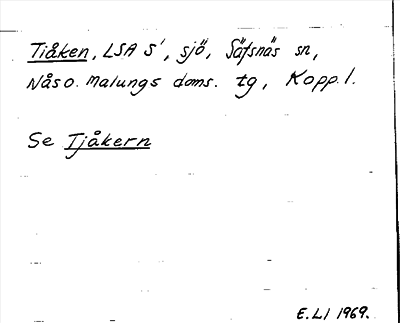 Tiåken, LSA S', sjö, Säfsnäs sn,
Nås o. Malungs doms. tg, Kopp. l.
Se Tjåkern
E. LI 1969.